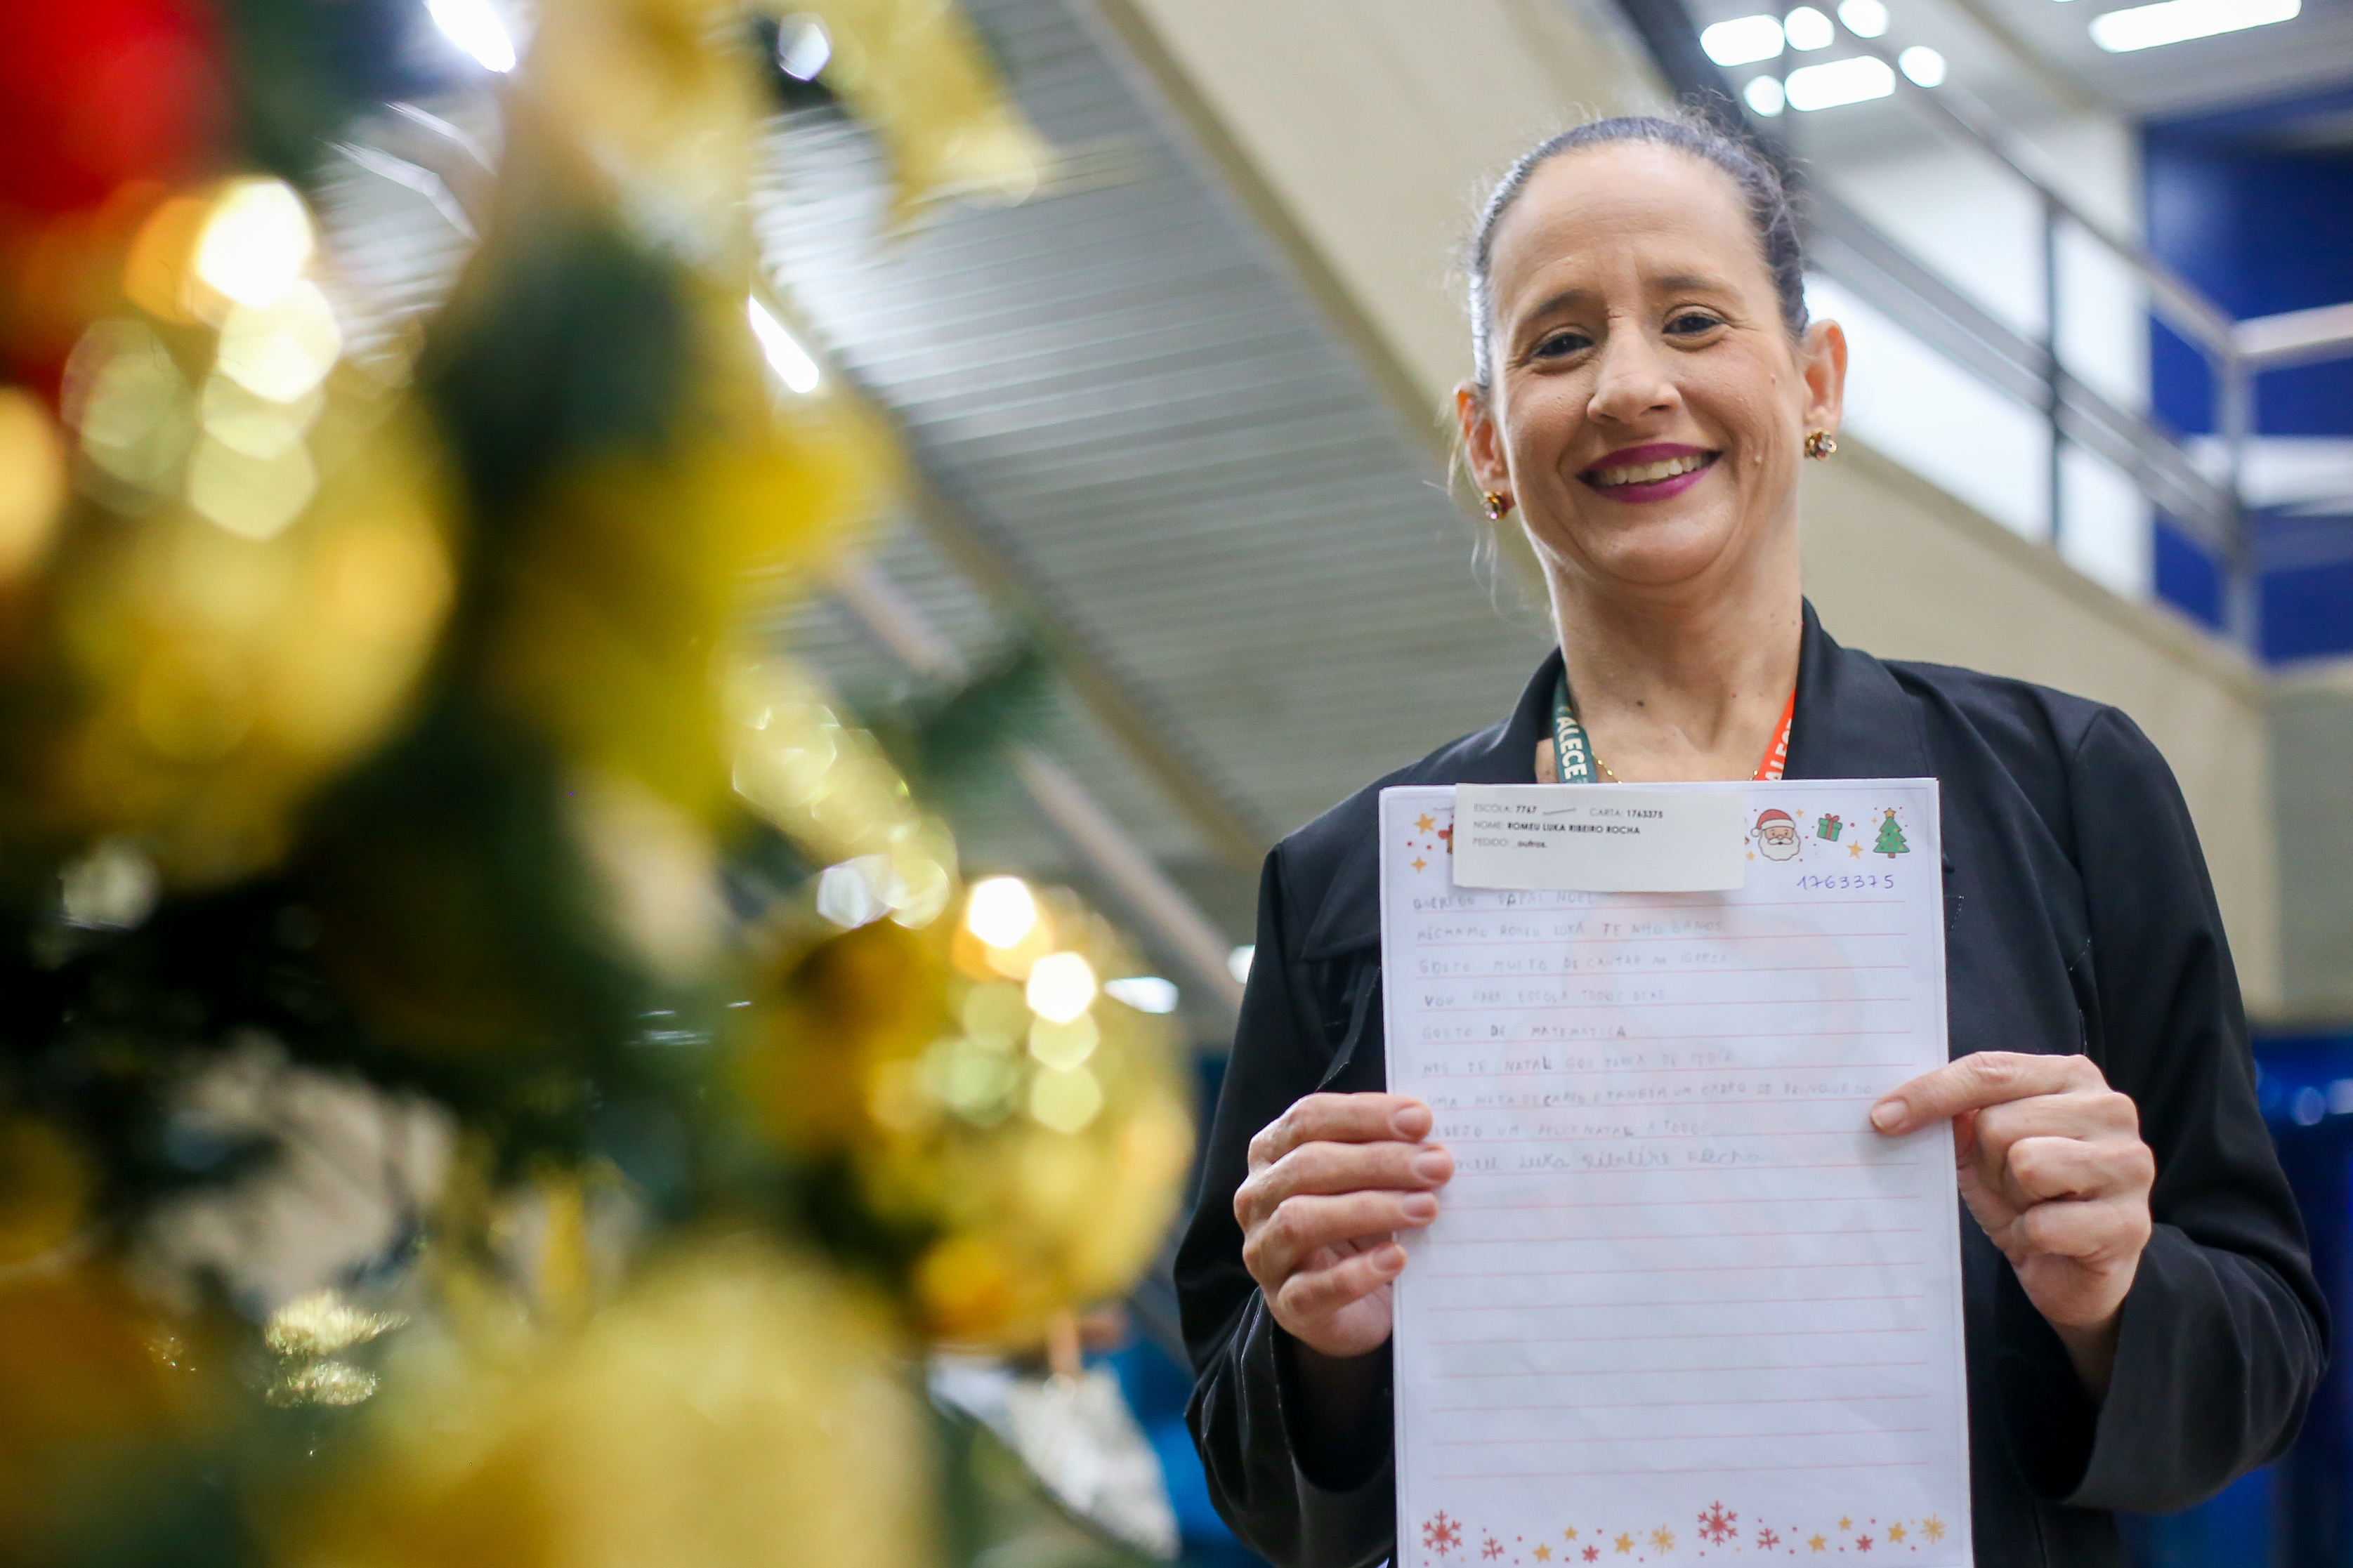 ALECE
ALEC
ESCOLA: 7767 CARTA: 1763375
NOME: ROMEU LUKA RIBEIRO ROCHA
PEDIDO: outros.
1763375
QUERIDO PAPAI NOEL
MECHAMO ROMEU LUKA TENHO 8 ANOS
GOSTO MUITO DE CANTAR NA IGREJA
VOU PARA ESCOLA TODOS DIAS
GOSTO DE MATEMATICA
TE NATAL GOSTARIA DE PEDIR
UMA DE CARRO E TANBEM UM CARRO DE BRINQUEDO
UM FELIZ NATAL A TODOS
meu Luka Ribeiro Rocha